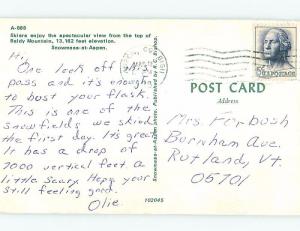 A-868
Skiers enjoy the spectacular view from the top of
Baldy Mountain, 13,162 feet elevation.
Snowmass-at-Aspen.
Hi,
One look off this
pass and it's enough
to bust your flask.
This is one of the
snowfields we skied
the first day. It's great
It has a drop of
7000 vertical feet a
little scary. Hope your
still feeling good.
Olie
POST CARD
Address
Mrs Forbush
Burnham Ave.
Rutland, Vt.
05701
102045